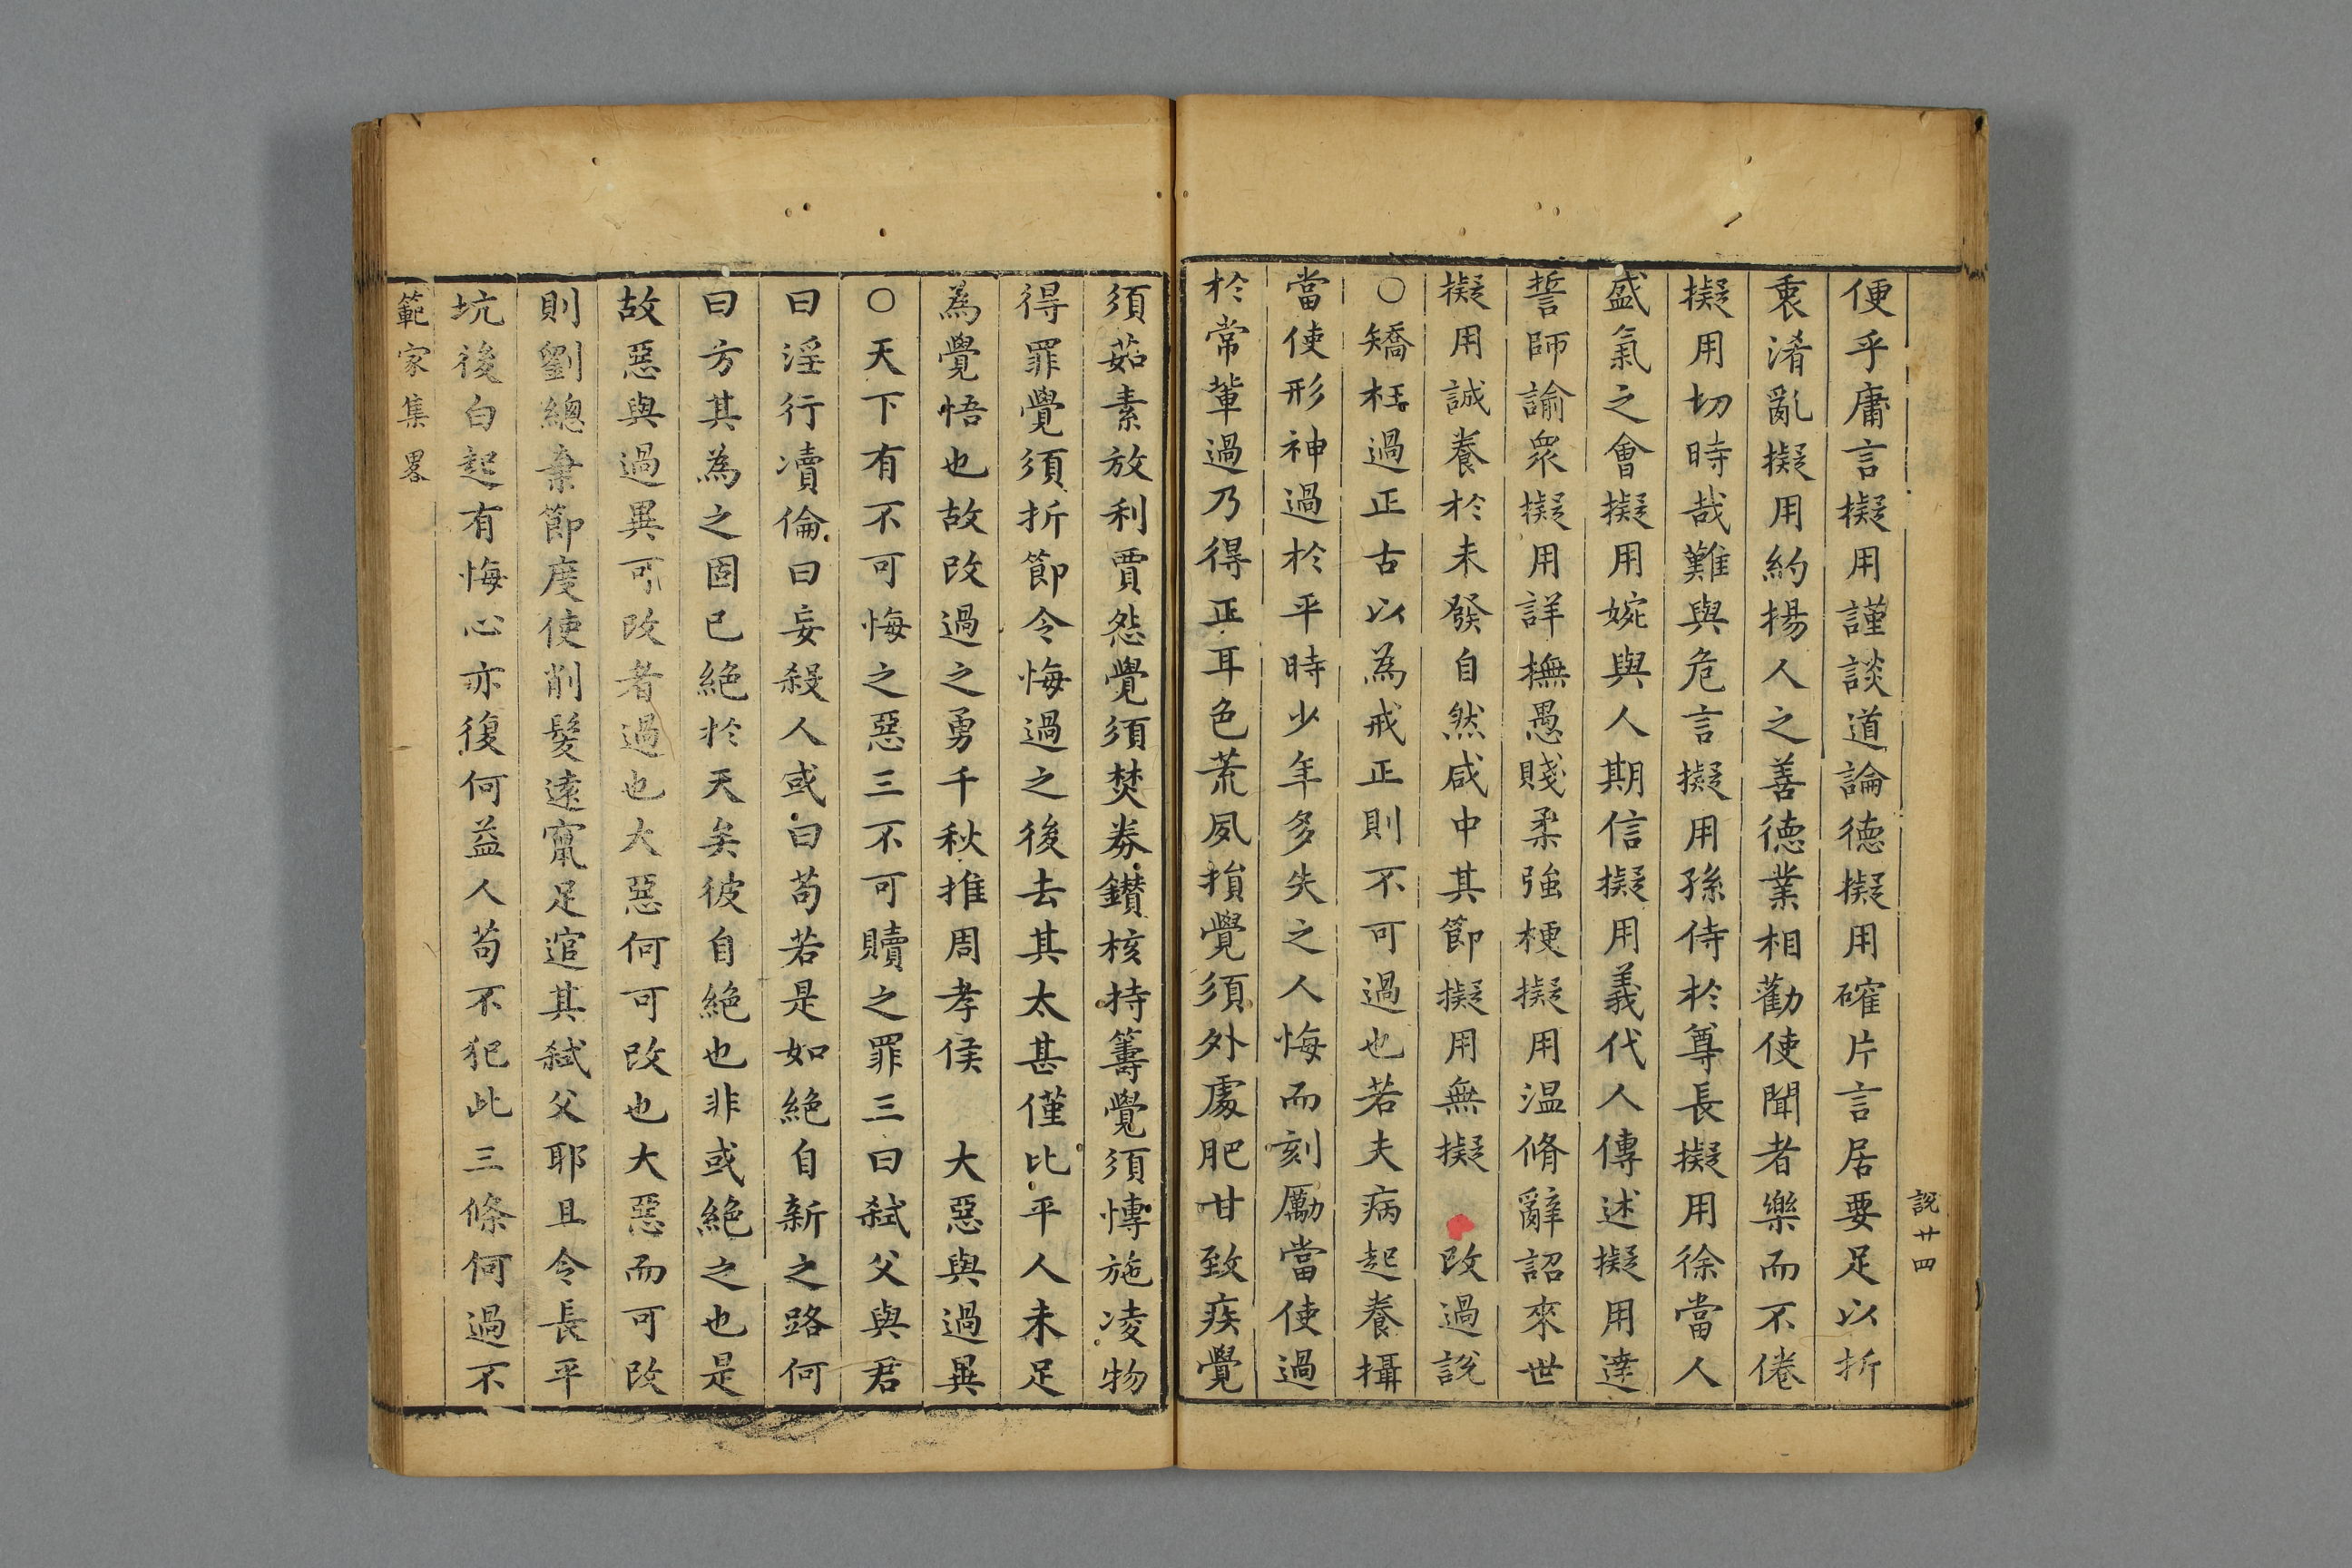 說廿四
便乎庸言擬用謹談道論德擬用確片言居要足以折
衷淆亂擬用約揚人之善德業相勸使聞者樂而不倦
擬用切時哉難與危言擬用孫侍於尊長擬用徐當人
盛氣之會擬用婉與人期信擬用義代人傳述擬用達
誓師諭衆擬用詳撫愚賤柔強梗擬用温脩辭詔來世
擬用誠養於未發自然咸中其節擬用無擬　改過說
○矯枉過正古以為戒正則不可過也若夫病起養攝
當使形神過於平時少年多失之人悔而刻勵當使過
於常軰過乃得正耳色荒夙損覺須外處肥甘致疾覺
須茹素放利賈怨覺須焚券鑽核持籌覺須慱施凌物
得罪覺須折節令悔過之後去其太甚僅比平人未足
為覺悟也故改過之勇千秋推周孝侯　大惡與過異
○天下有不可悔之惡三不可贖之罪三曰弑父與君
曰淫行凟倫曰妄殺人或曰苟若是如絶自新之路何
曰方其為之固已絶於天矣彼自絶也非或絶之也是
故惡與過異可改者過也大惡何可改也大惡而可改
則劉總棄節度使削髮遠竄足逭其弑父耶且令長平
坑後白起有悔心亦復何益人苟不犯此三條何過不
範家集畧